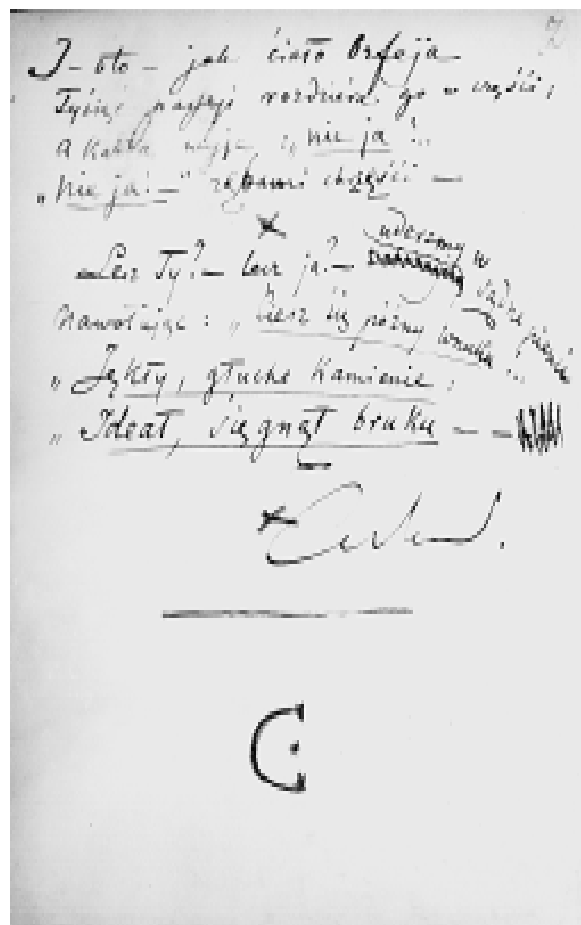 I – oto – jak ciało Orfeja
Tysiąc passji rozdziera go w części;
A każda wyje: „nie ja!..
„Nie ja! –" zębami chrzęści –
×
– Lecz Ty? – lecz ja? – uderzmy w sądne pienie
Nawołując: „Ciesz się późny wnuku...
„Jękły, głuche Kamienie:
„Ideał, sięgnął bruku – –
×
C